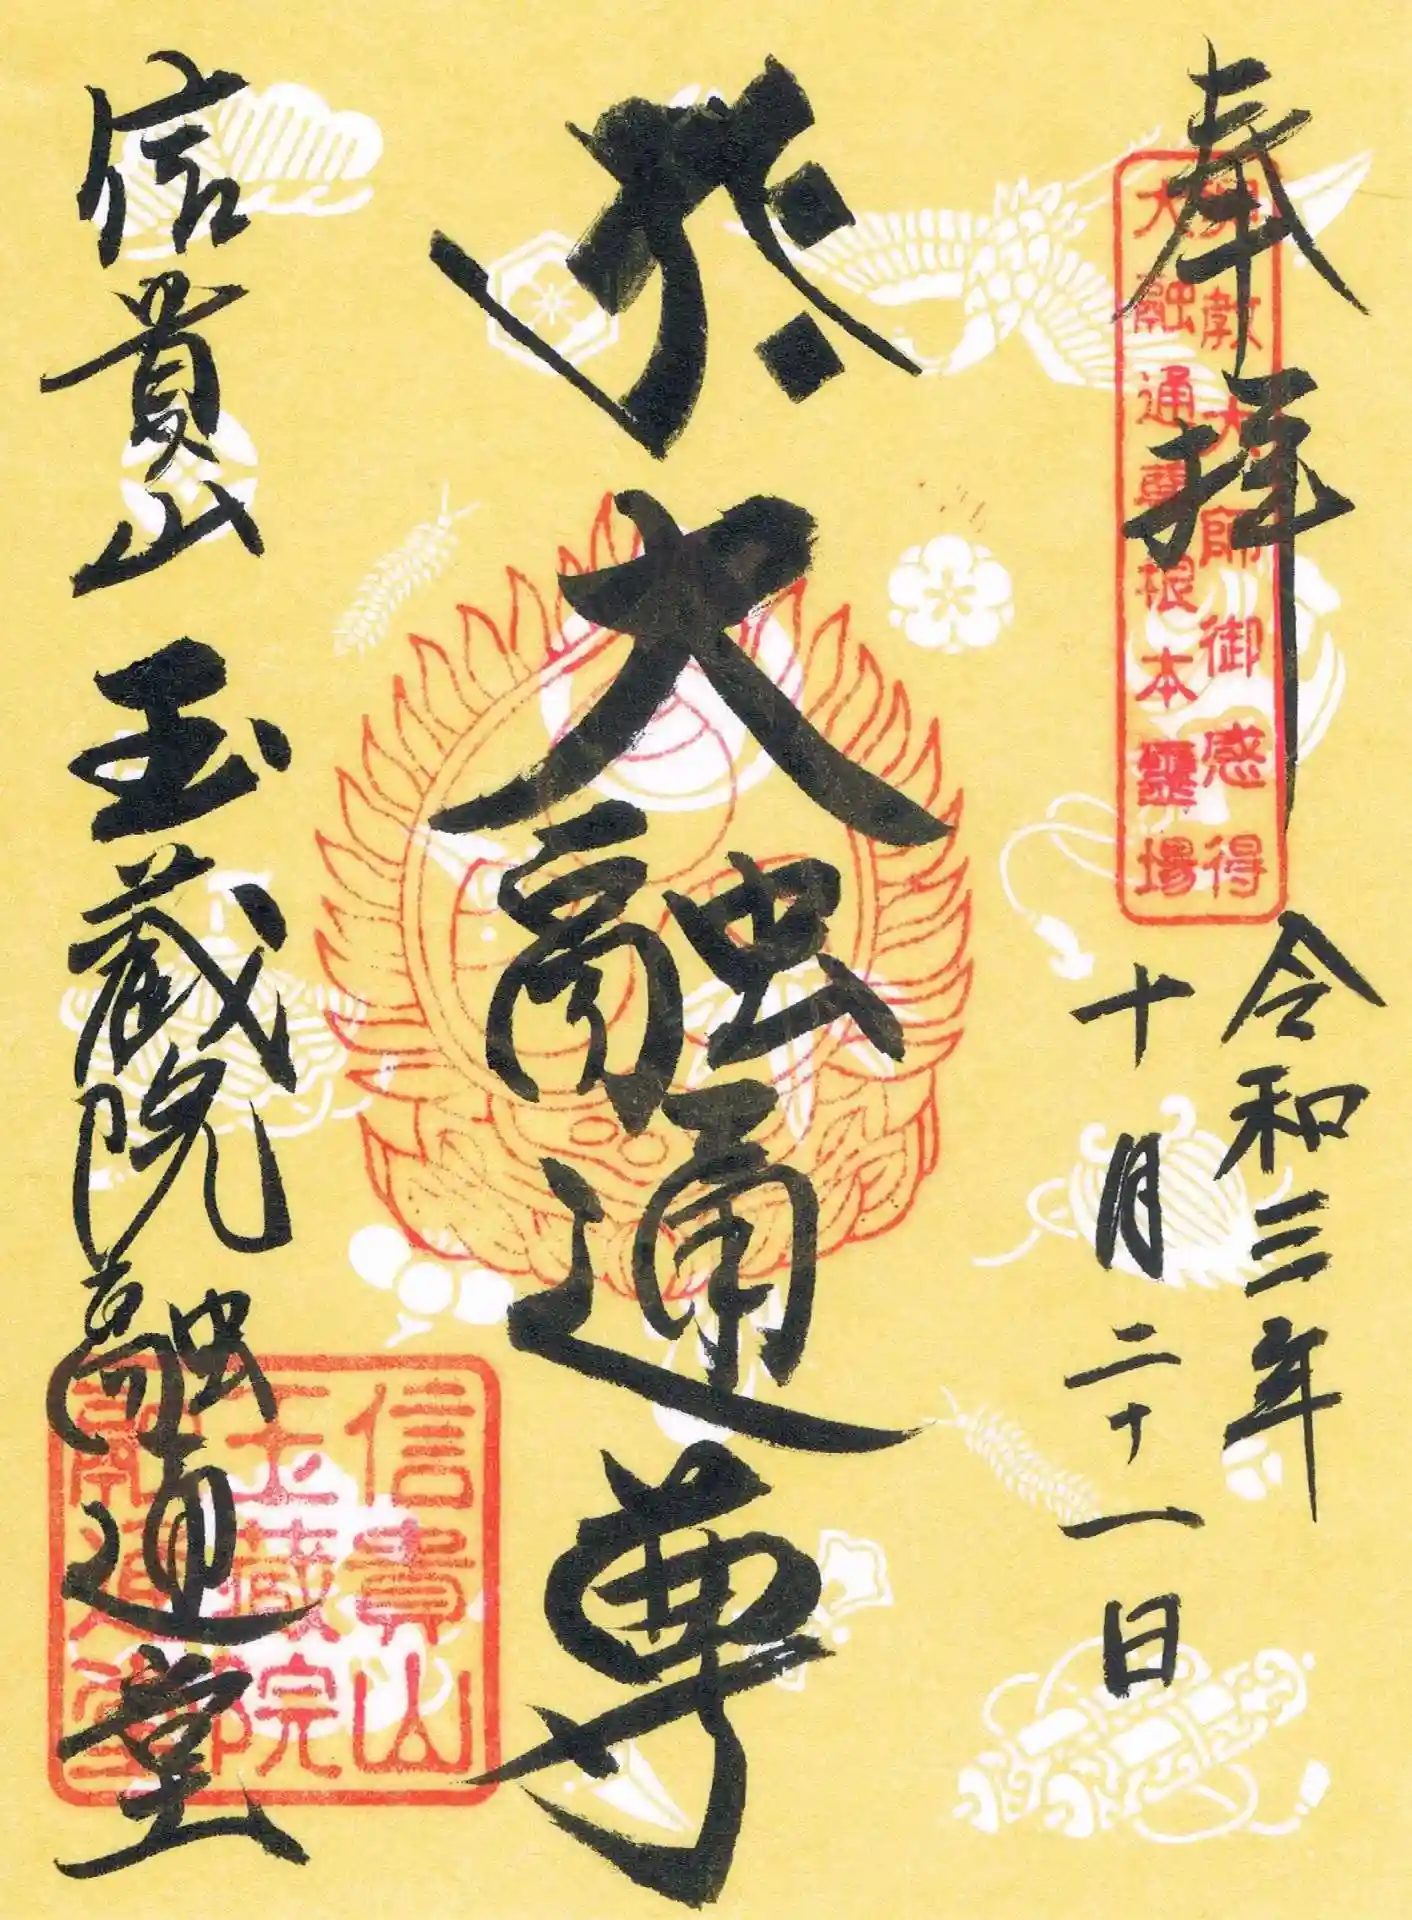 奉拝
興教大師御感得
大融通尊根本霊場
令和三年
十月二十一日
大融通尊
信貴山 玉蔵院融通堂
信貴山
玉蔵院
融通堂